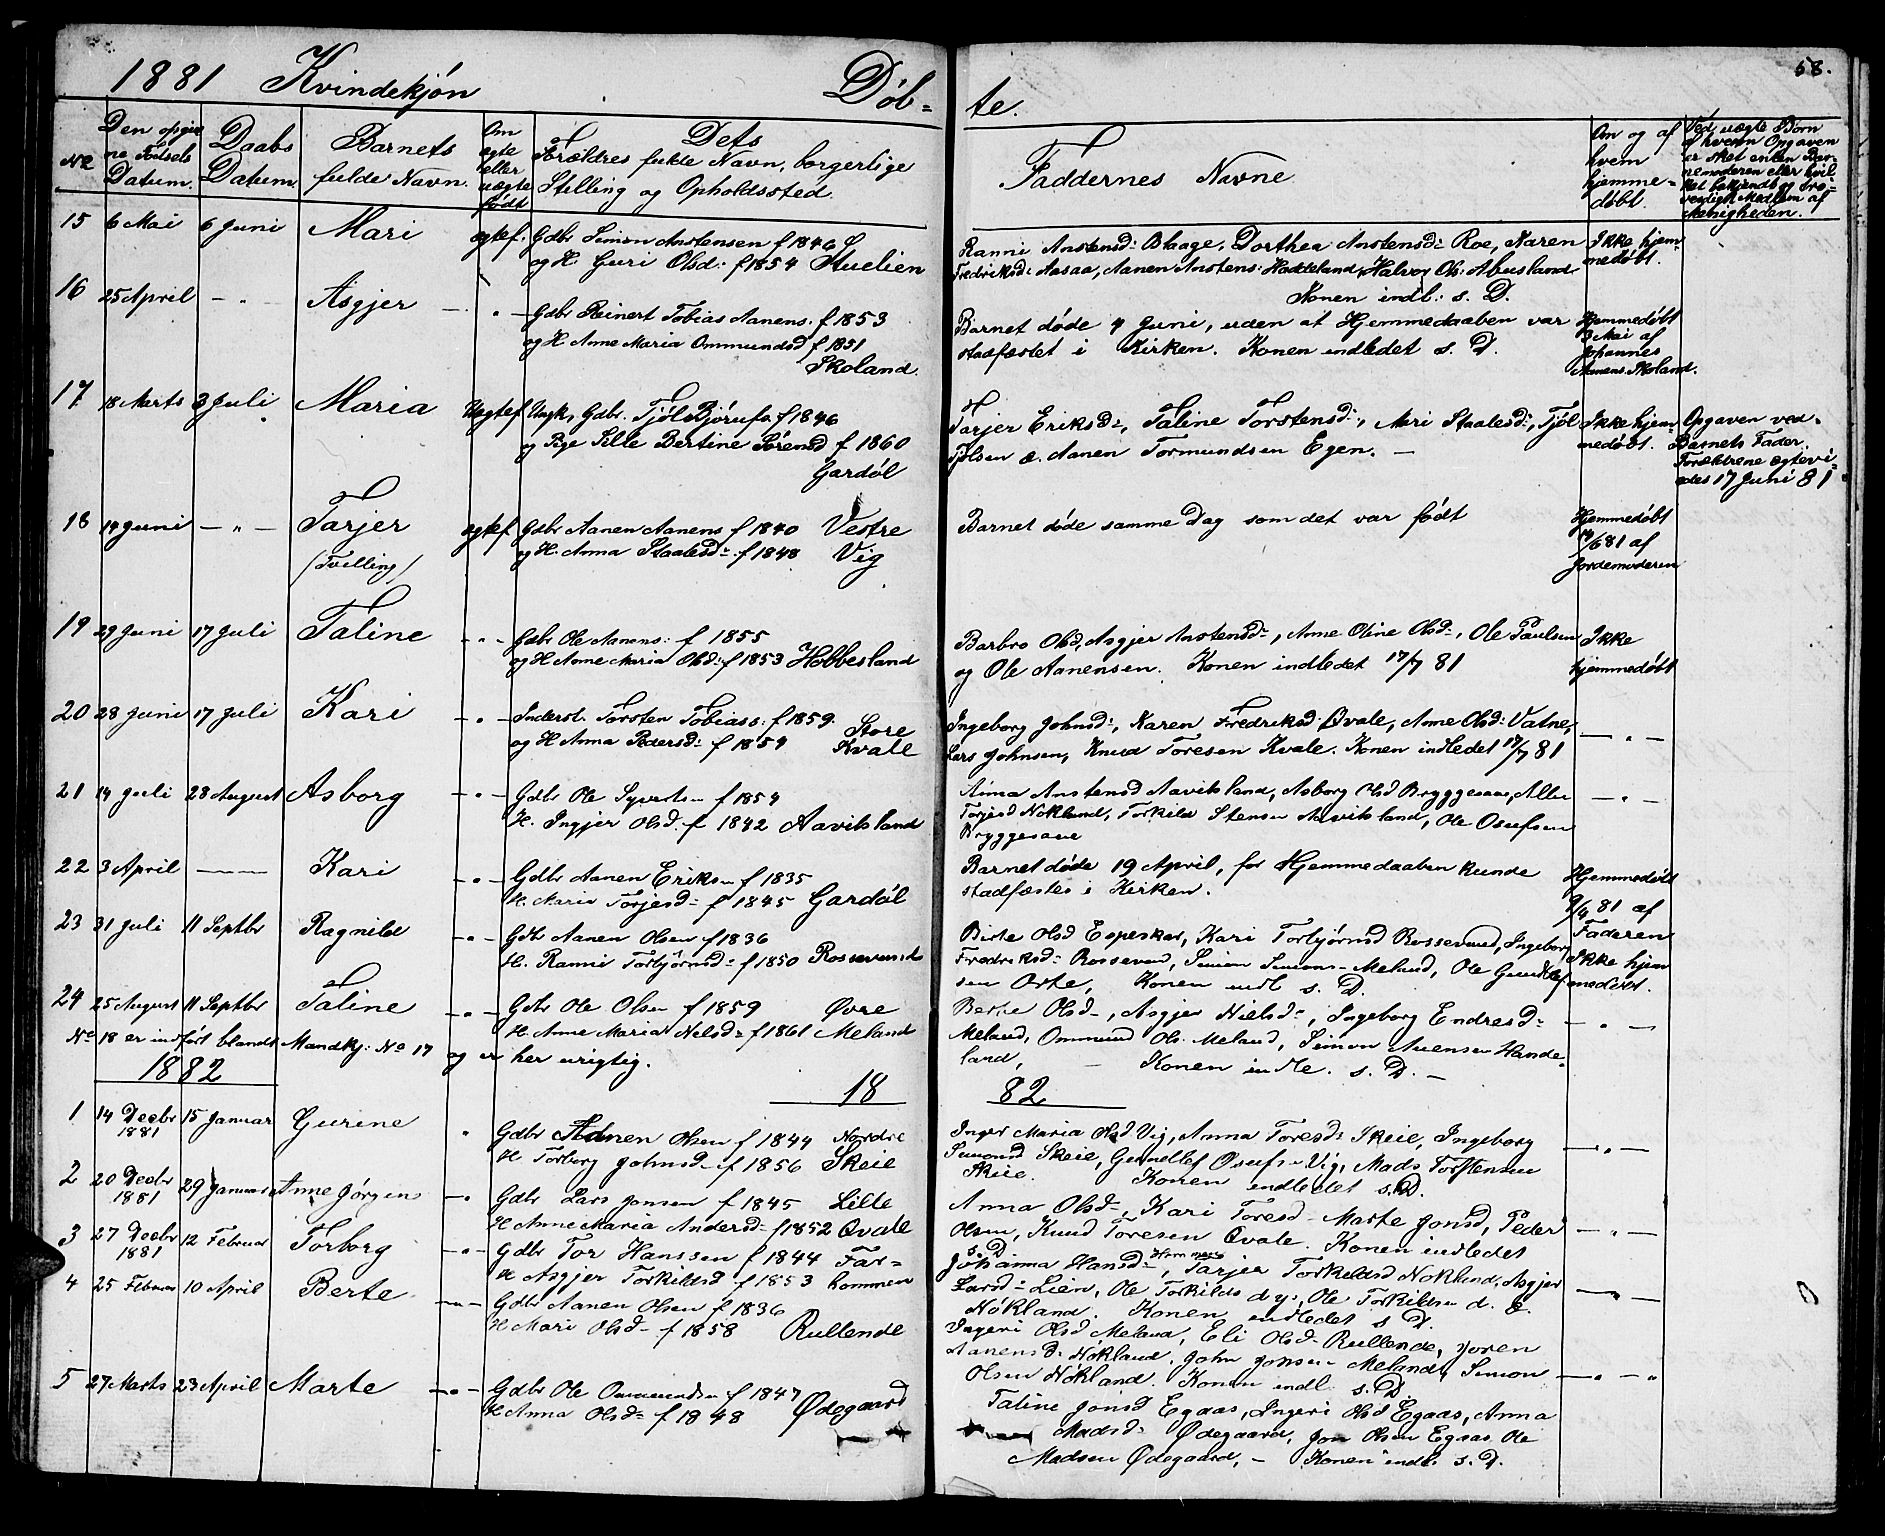 1881 Kvindekjøn Døb-
te.
58.
No
Den opgiv
ne Fødsels
Datum.
Daabs
Datum
Barnets
fulde Navn.
Om
ægte
eller
uægte
født
Dets
Forældres fulde Navn, borgerlige
Stilling og Opholdssted.
Faddernes Navne
Om og af
hvem
hjemme-
døbt.
Ved uægte Børn
af hvem Opgaven
er sket enten Bar-
nemoderen eller hvil
ket bekjendt og tro-
værdigt Medlem af
Menigheden.
15 6 Mai 6 Juni Mari ægtef. Gdbr Simon Anstensen f 1846
og H. Guri Olsd: f 1854 Stuelien
Ranni Anstensd: Blaage, Dorthea Anstensd: Roe, Karen
Fredriksd: Aasaa, Aanen Anstens: Haddeland, Halvor Ols: Abusland
Konen indl: s. D.
Ikke hjem
medøbt.
16 25 April — " — Asgjer — " — Gdbr Reinert Tobias Aanens. f 1853
og H Anne Maria Ommundsd f 1851
Skoland.
Barnet døde 4 Juni, uden at Hjemmedaaben var
stadfæstet i Kirken. Konen indledet s. D.
Hjemmedøbt
3 Mai af
Johannes
Aanens. Skoland.
17 18 Marts 3 Juli Maria Uægtef Ungk, Gdbr. Tjøl Bjørufs. f 1846
og Pige Sille Bertine Sørensd f 1860
Gardøl
Tarjer Eriksd:, Taline Torstensd:, Mari Staalesd:, Tjøl
Tjølsen æ. Aanen Tormundsen Egen. —
Ikke hjem-
medøbt.
Opgaven ved
Barnets Fader.
Forældrene ægtevi-
edes 17 Juni 81
18 14 Juni — " — Tarjer ægtef Gdbr Aanen Aanens f 1840 Vestre
(Tvilling) og H. Anna Staalesd: f 1848 Vig
Barnet døde samme Dag som det var født
Hjemmedøbt
14/6 81 af
Jordemoderen
19 29 Juni 17 Juli Taline — " — Gdbr Ole Aanens: f 1855
og H Anne Maria Olsd: f 1853 Hobbesland
Barbro Olsd, Asgjer Anstensd:, Anne Oline Olsd:, Ole Paulsen
og Ole Aanensen. Konen indledet 17/7 81
Ikke
hjemmedøbt
20 28 Juni 17 Juli Kari — " — Inderst. Torsten Tobiass: f 1859. Store
og H Anna Pedersd: f 1859 Kvale
Ingeborg Johnsd:, Karen Fredriksd: Qvale, Anne Olsd: Vatne,
Lars Johnsen, Knud Toresen Kvale. Konen indledet 17/7 81 — " —
21 14 Juli 28 August Asborg — " — Gdbr Ole Syverts- f 1854
H. Ingjer Olsd: f 1842 Aavitsland
Anna Anstensd Aavitsland, Asborg Olsd Bryggesaae,
Torjesd Nøkland, Torkild Stensen Aavitsland, Ole Osufsen — " —
Bryggesaae
22 3 April — — Kari — " — Gdbr Aanen Eriks- f 1835
H. Maria Torjesd- f 1845 Gardøl
Barnet døde 19 April, før Hjemmedaaben kunde
stadfæstes i Kirken.
Hjemmedøbt
9/4 81 af
Faderen
23 31 Juli 11 Septbr Ragnild — " — Gdbr Aanen Olsen f 1836
H. Ranni Torbjørnsd- f 1850 Rossevand
Birte Olsd Espeskar, Kari Torbjørnsd Rossevand, Ingeborg
Fredriksd- Rossevand, Simon Simons- Meland, Ole Gundlef
sen Orte, Konen indl s. D.
Ikke hjem
medøbt.
24 25 August 11 Septbr Taline — " — Gdbr Ole Olsen f 1859 Øvre
H. Anne Maria Nilsd- f 1861 Meland
Berte Olsd-, Asgjer Nielsd-, Ingeborg Endresd-
Meland, Ommund Ols- Meland, Simon Auensen Hande- — " —
land, — Konen indle. s. D. —
No 18 er indført blandt Mandkj: No 17 og er her urigtig.
1882
18 82
1 14 Decbr 15 Januar Gurine " Gdbr Aanen Olsen f 1844 Nordre
1881 H Torborg Johnsd- f 1856 Skeie
Inger Maria Olsd Vig, Anna Toresd: Skeie, Ingeborg
Simonsd Skeie, Gundlef Osufs- Vig, Mads Torstensen — " —
Skeie. Konen indledet s. D.
2 20 Decbr 29 Januar Anne Jørgine — " Gdbr Lars Jonsen f 1845 Lille
1881 H Anne Maria Andersd- f 1852 Qvale
Anna Olsd-, Kari Toresd- Marte Jonsd, Peder
Olsen, Knud Toresen Qvale. Konen indledet — " —
s. D.
3 27 Decbr 12 Februar Torborg — " — Gdbr Tor Hanssen f 1844 Far-
1881 H Asgjer Torkildsd f 1853 kommen
Johanna Hansd-, Tarjer Torkildsd Nøkland, Asgjer
Larsd- Lien, Ole Torkilds d y:, Ole Torkildsen d. æ. — " —
Nøkland. Konen indledet s. D.
4 25 Februar 10 April Berte — " — Gdbr Aanen Olsen f 1836
H Mari Olsd- f 1858 Rullende
Ingeri Olsd Meland, Eli Olsd- Rullende, Joren
Aanensd- Nøkland, John Jonsen Meland, Simon
Olsen Nøkland. Konen indl s. D. — " — "
5 27 Marts 23 April Marte — " — Gdbr Ole Ommunds- f 1847
H Anna Olsd- f 1848 Ødegaard
Taline Jonsd Egaas, Ingeri Olsd Egaas, Anna
Madsd- Ødegaard, Jon Olsen Egaas Ole
Madsen Ødegaard, — Konen indl. s. D.